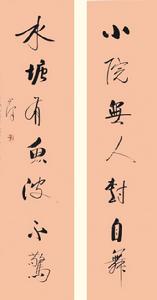 小院無人對自舞
水塘有魚波不驚